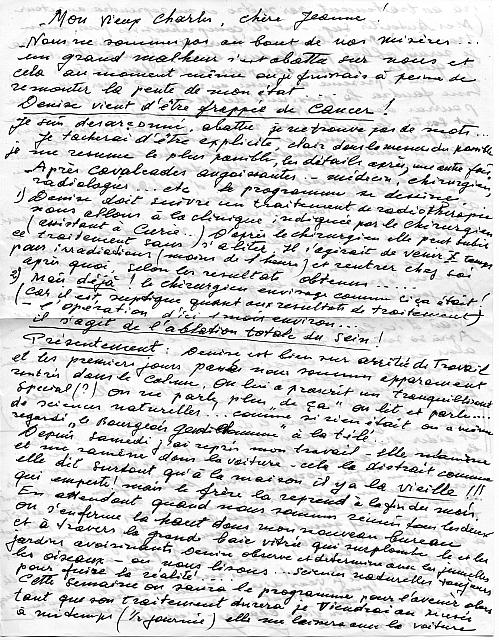 Mon vieux Charles, chère Jeanne!
Nous ne sommes pas au bout de nos misères...
un grand malheur s'est abattu sur nous et
cela au moment même où je finissais à peine de
remonter la pente de mon état...
Denise vient d'être frappée de cancer!
Je suis désarçonné, abattu, je ne trouve pas de mots...
Je tacherai d'être explicite, clair dans la mesure du possible
je me resume le plus possible, les détails après, une autre fois,
Après cavalcades angoissantes - médecin, chirurgien,
radiologue... etc. le programme se dessine
1) Denise doit suivre un traitement de radiothérapie
nous allons à la clinique indiquée par le chirurgien
(assistant à Curie..) D'après le chirurgien elle peut subir
ce traitement sans s'aliter. Il s'agirait de venir
pour irradiations (moins de 1 heure) et rentrer chez soi
après quoi, selon les resultats obtenus.....
2) Mais déjà! le chirurgien envisage comme si ça était!
(car, il est septique quant aux resultats de traitement)
- l'opération d'ici 1 mois environ...
il s'agit de l'ablation totale du sein!
Présentement: Denise est bien sur arrêtée de travail
et les premiers jours passés nous sommes apparament
rentrés dans le calme. On lui a prescrit un tranquillisant
special(?) On ne parle plus de "ça" on lit et parle...
de sciences naturelles.. comme si rien était on a même
regardé "le Bourgeois gentilhomme" à la télé.
Depuis samedi j'ai repris mon travail - elle m'amène
et me ramène dans la voiture - cela la distrait comme
elle dit surtout qu'à la maison il y a la vieille!!!
qui empeste! mais le frère la reprend à la fin du mois.
En attendant quand nous sommes réunis tous les deux
on s'enferme là haut dans mon nouveau bureau
et à travers la grande baie vitrée qui surplombe le et les
jardins avoisinants Denise observe et determine avec les jumelles
les oiseaux - ou nous lisons... sciences naturelles toujours
pour fuire la réalité!....
Cette semaine on saura le programme pour l'avenir alors
tant que son traitement durera je viendrai au musée
à mi temps (½ journée) elle me laissera la voiture